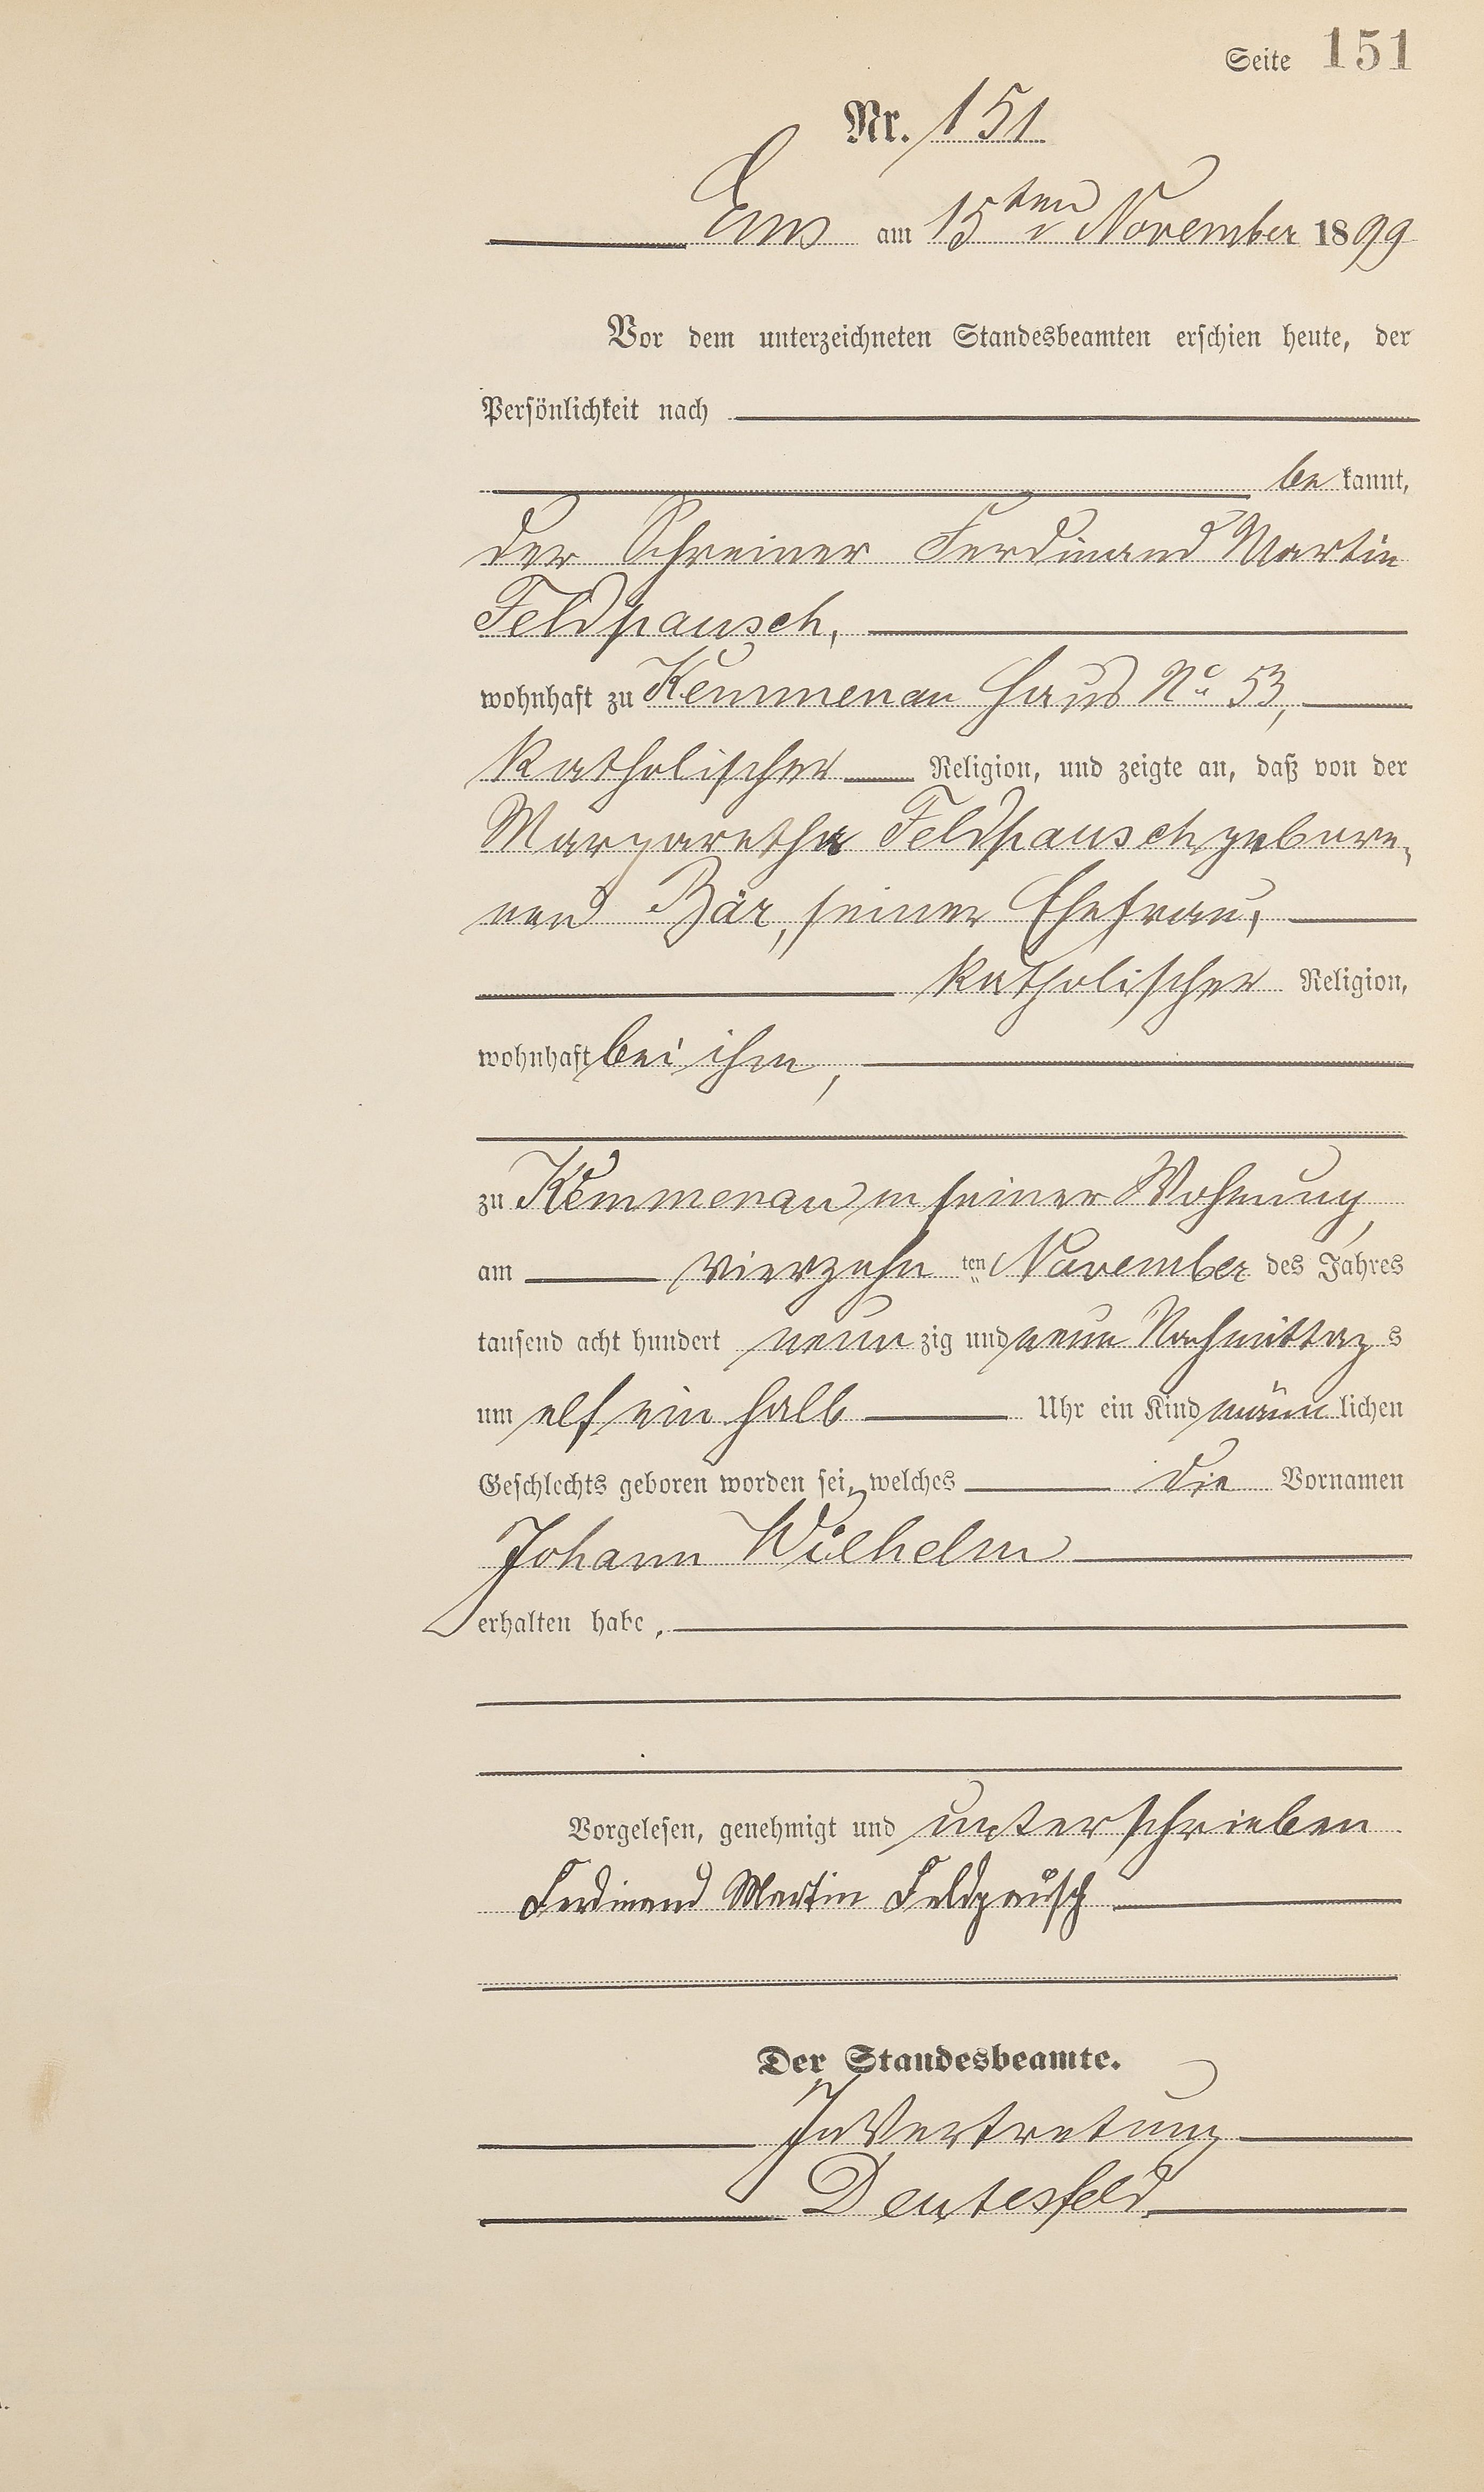 Seite 151
Nr. 151
Ems am 15ten November 1899
Vor dem unterzeichneten Standesbeamten erschien heute, der
Persönlichkeit nach
be kannt,
der Schreiner Ferdinand Martin
Feldpausch,
wohnhaft zu Kemmenau Haus No 53,
katholischer Religion, und zeigte an, daß von der
Margaretha Feldpausch gebore-
nen Bär, seiner Ehefrau,
katholischer Religion,
wohnhaft bei ihm,
zu Kemmenau in seiner Wohnung,
am vierzehn ten November des Jahres
tausend acht hundert neun zig und neun Nachmittag s
um elf ein halb Uhr ein Kind männ lichen
Geschlechts geboren worden sei, welches die Vornamen
Johann Wilhelm
erhalten habe.
Vorgelesen, genehmigt und unterschrieben
Ferdinand Martin Feldpausch
Der Standesbeamte.
In Vertretung
Deutesfeld